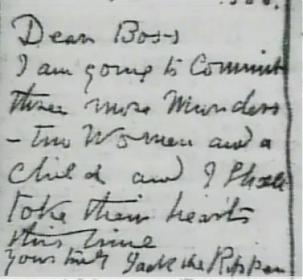 Dear Boss
I am going to Commit
three more Murders
- two Women and a
Child and I shall
take their hearts
this time
yours truly Jack the Ripper